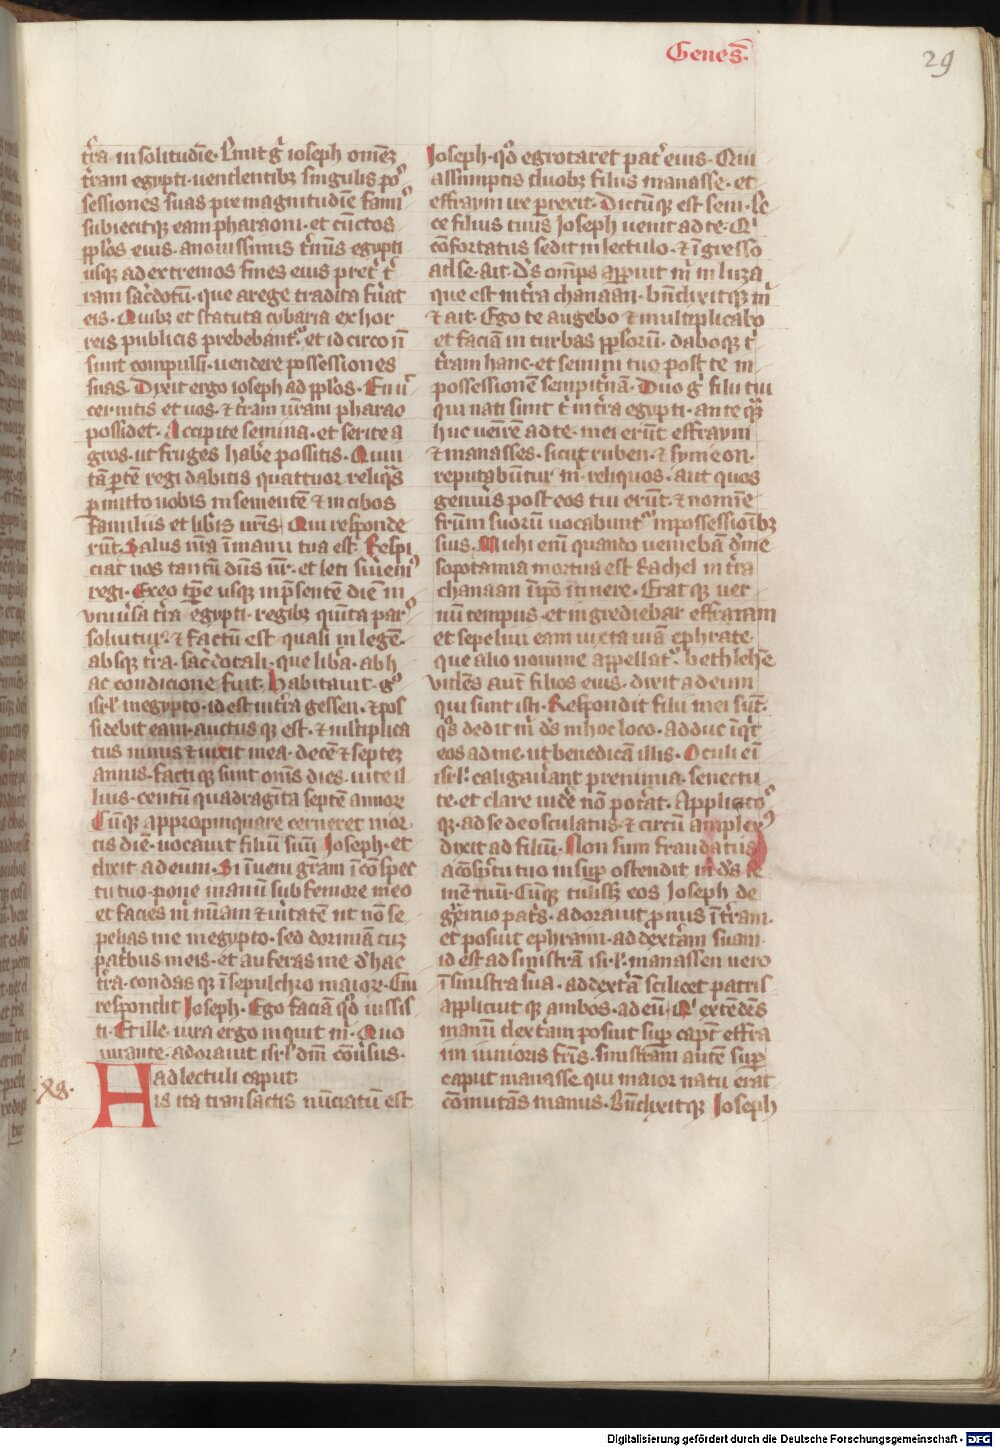 Genes̄.
29
tr̄a in solitudīe. Emit gͥ ioseph omēꝫ
tr̄am egypti uendentibꝫ singulis pos
sessiones suas pre magnitudīe famis
subiecitqꝫ eam pharaoni. et cūctos
ppl̄os eius. a nouissimis tͥmīs egypti
usqꝫ ad extremos fines eius pretͥ tͥ
ram sac̄dotū. que a rege tradita fūat
eis. Quibꝫ et statuta cibaria ex hor
reis publicis prebebantᷣ. et id circo nͦ
sunt compulsi. uendere possessiones
suas. Dixit ergo ioseph ad ppl̄os. En ut
cernitis et uos. ⁊ tr̄am ur̄am pharao
possidet. Accipite semina. et serite a
gros. ut fruges habe̅ possitis. Quin
tā ꝑtē regi dabitis quattuor reliqᷤs
ꝑmitto uobis in sementē ⁊ in cibos
familiis et lib̄is ur̄is. Qui responde
rūt. Salus nr̄a ī manu tua est. Respi
ciat nos tantū dūs nr̄. et leti suiemꝰ
regi. Ex eo tꝑe usqꝫ in p̄sentē diē in
vniūsa tr̄a egypti. regibꝫ quīta pars
soluitur. ⁊ factū est quasi in legē.
absqꝫ tr̄a. sac̄dotali. que lib̄a. ab h
ac condicione fuit. Habitauit. gͦ
isrl̄ in egypto. id est in tr̄a gessen. ⁊ pos
sidebit eam. auctus qꝫ est. ⁊ m̄ltiplica
tus nimis ⁊ uixit in ea. decē ⁊ septeꝫ
annis. facti qꝫ sunt om̄s dies. uite il
lius. centū quadragīta septē annorꝫ
Cūqꝫ appropinquare cerneret mor
tis diē. uocauit filiū suū Joseph. et
dixit ad eum. Si īueni gr̄am ī cōspec
tu tuo. pone manū sub femore meo
et facies mͥ mīam ⁊ uītatē ut nō se
pelias me in egypto. sed dormiā cuꝫ
pat̄bus meis. et auferas me d̓ hac
tr̄a. condas qꝫ ī sepulchro maiorꝫ. Cui
respondit Joseph. Ego faciā qd̓ iussis
ti. Et ille. iura ergo inquit mͥ. Quo
iurante. adorauit isrl̄ dm̄ cōūsus.
ad lectuli caput.
xlviii.
His ita transactis nūciatū est
Joseph. qd̓ egrotaret patͥ eius. Qui
assumptis duobꝫ filiis manasse. et
effraym ire perrexit. Dictūqꝫ est seni. Ec
ce filius tuus Joseph uenit ad te. Qͥ
cōfortatus sedit in lectulo. ⁊ īgresso
ad se. ait. Ds̄ omp̄s apparuit mͥ in luza
que est in tr̄a chanaan. bn̄dixitqꝫ mͥ
⁊ ait. Ego te augebo ⁊ multiplicabo
et faciā in turbas ppl̄orū. daboqꝫ tͥ
tr̄am hanc. et semini tuo post te in
possessionē sempit̄nā. Duo gͦ filii tui
qui nati sunt tͥ in tr̄a egypti. ante qᷓ
huc uenirē ad te. mei erūt effraym
⁊ manasses. sicut ruben. ⁊ symeon.
reputabūtur mͥ. reliquos. aut quos
genuis post eos tui erūt. ⁊ nomīe
fr̄um suorū uocabuntᷣ in possessioībꝫ
suis. Michi eni quando ueniebā d̓ me
sopotamia mortua est Rachel in tr̄a
chanaan ī ipō itinere. Erat qꝫ uer
nū tempus. et ingrediebar effratam
et sepeliui eam iuxta uiā ephrate.
que alio nomine appellatᷣ. bethlehē
videns aut̄ filios eius. dixit ad eum
qui sunt isti. Respondit filii mei sūt.
qͦs dedit mͥ ds̄ in hoc loco. adduc īqͥt
eos ad me. ut benedicā illis. Oculi eī
isrl̄. caligauānt pre nimia. senectu
te. et clare uidē nō potāt. Applicitos
qꝫ. ad se deosculatus ⁊ circū amplexꝰ
dixit ad filiū. Non sum fraudatus
a cōsp̄tu tuo insuꝑ ostendit mͥ ds̄ se
mē tuū. Cūqꝫ tulissꝫ eos Joseph de
gr̄emio pat̄s. adorauit pronus ī tr̄am.
et posuit ephraim. ad dext̄am suam.
id est ad sinistrā isrl̄. manassen uero
ī sinistra sua. ad dext̄ā scilicet patris
applicuit qꝫ ambos. ad eū. Qͥ extēdēs
manū dext̄am posuit suꝑ capͥt effra
im iunioris fr̄is. sinistram autē suꝑ
caput manasse qui maior natu erat
cōmutās manus. Bn̄dixitqꝫ Joseph
Digitalisierung gefördert durch die Deutsche Forschungsgemeinschaft - DFG